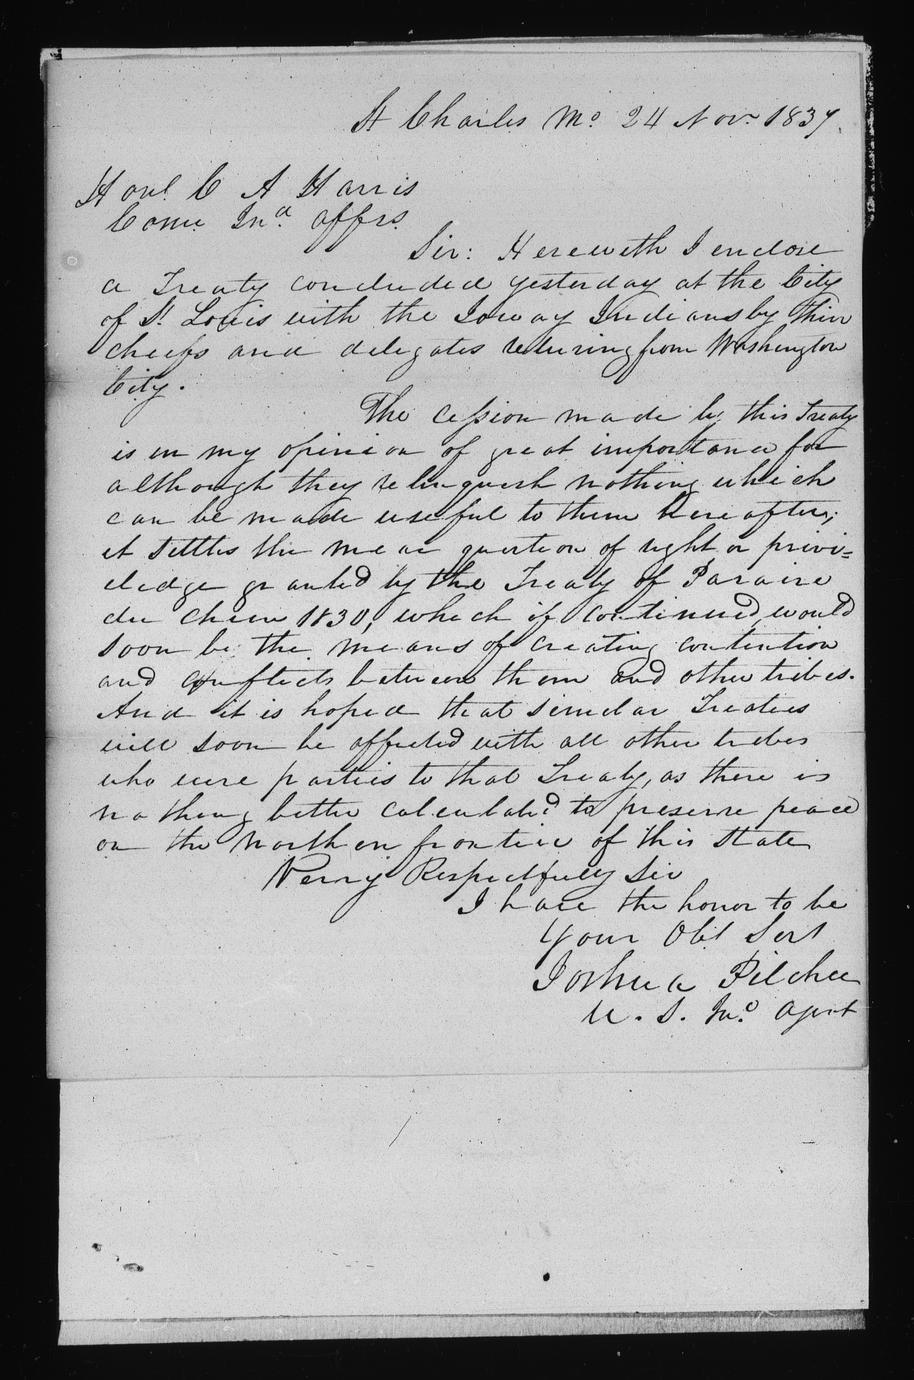 St Charles Mo. 24 Nov. 1837.
Honl. C A Harris
Come. Ina. affrs.
Sir: Herewith I enclose
a Treaty concluded yesterday at the City
of St. Louis with the Ioway Indians by thier
cheefs and delegates returning from Washington
City.
The cession made by this Treaty
is in my opinion of great importance for
although they relinquish nothing which
can be made useful to them hereafter;
it settles the mear question of right or privi=
eledge granted by the Treaty of Pararie
du cheen 1830, which if continued, would
soon be the means of creating contention
and conflicts between them and other tribes.
And it is hoped that similar Treaties
will soon be affected with all other tribes
who were parties to that Treaty, as there is
nothing better calculated to preserve peace
on the northern frontier of this State
Verry Respectfully Sir
I have the honor to be
Your Obt Sert
Joshua Pilcher
U. S. Ind. Agent